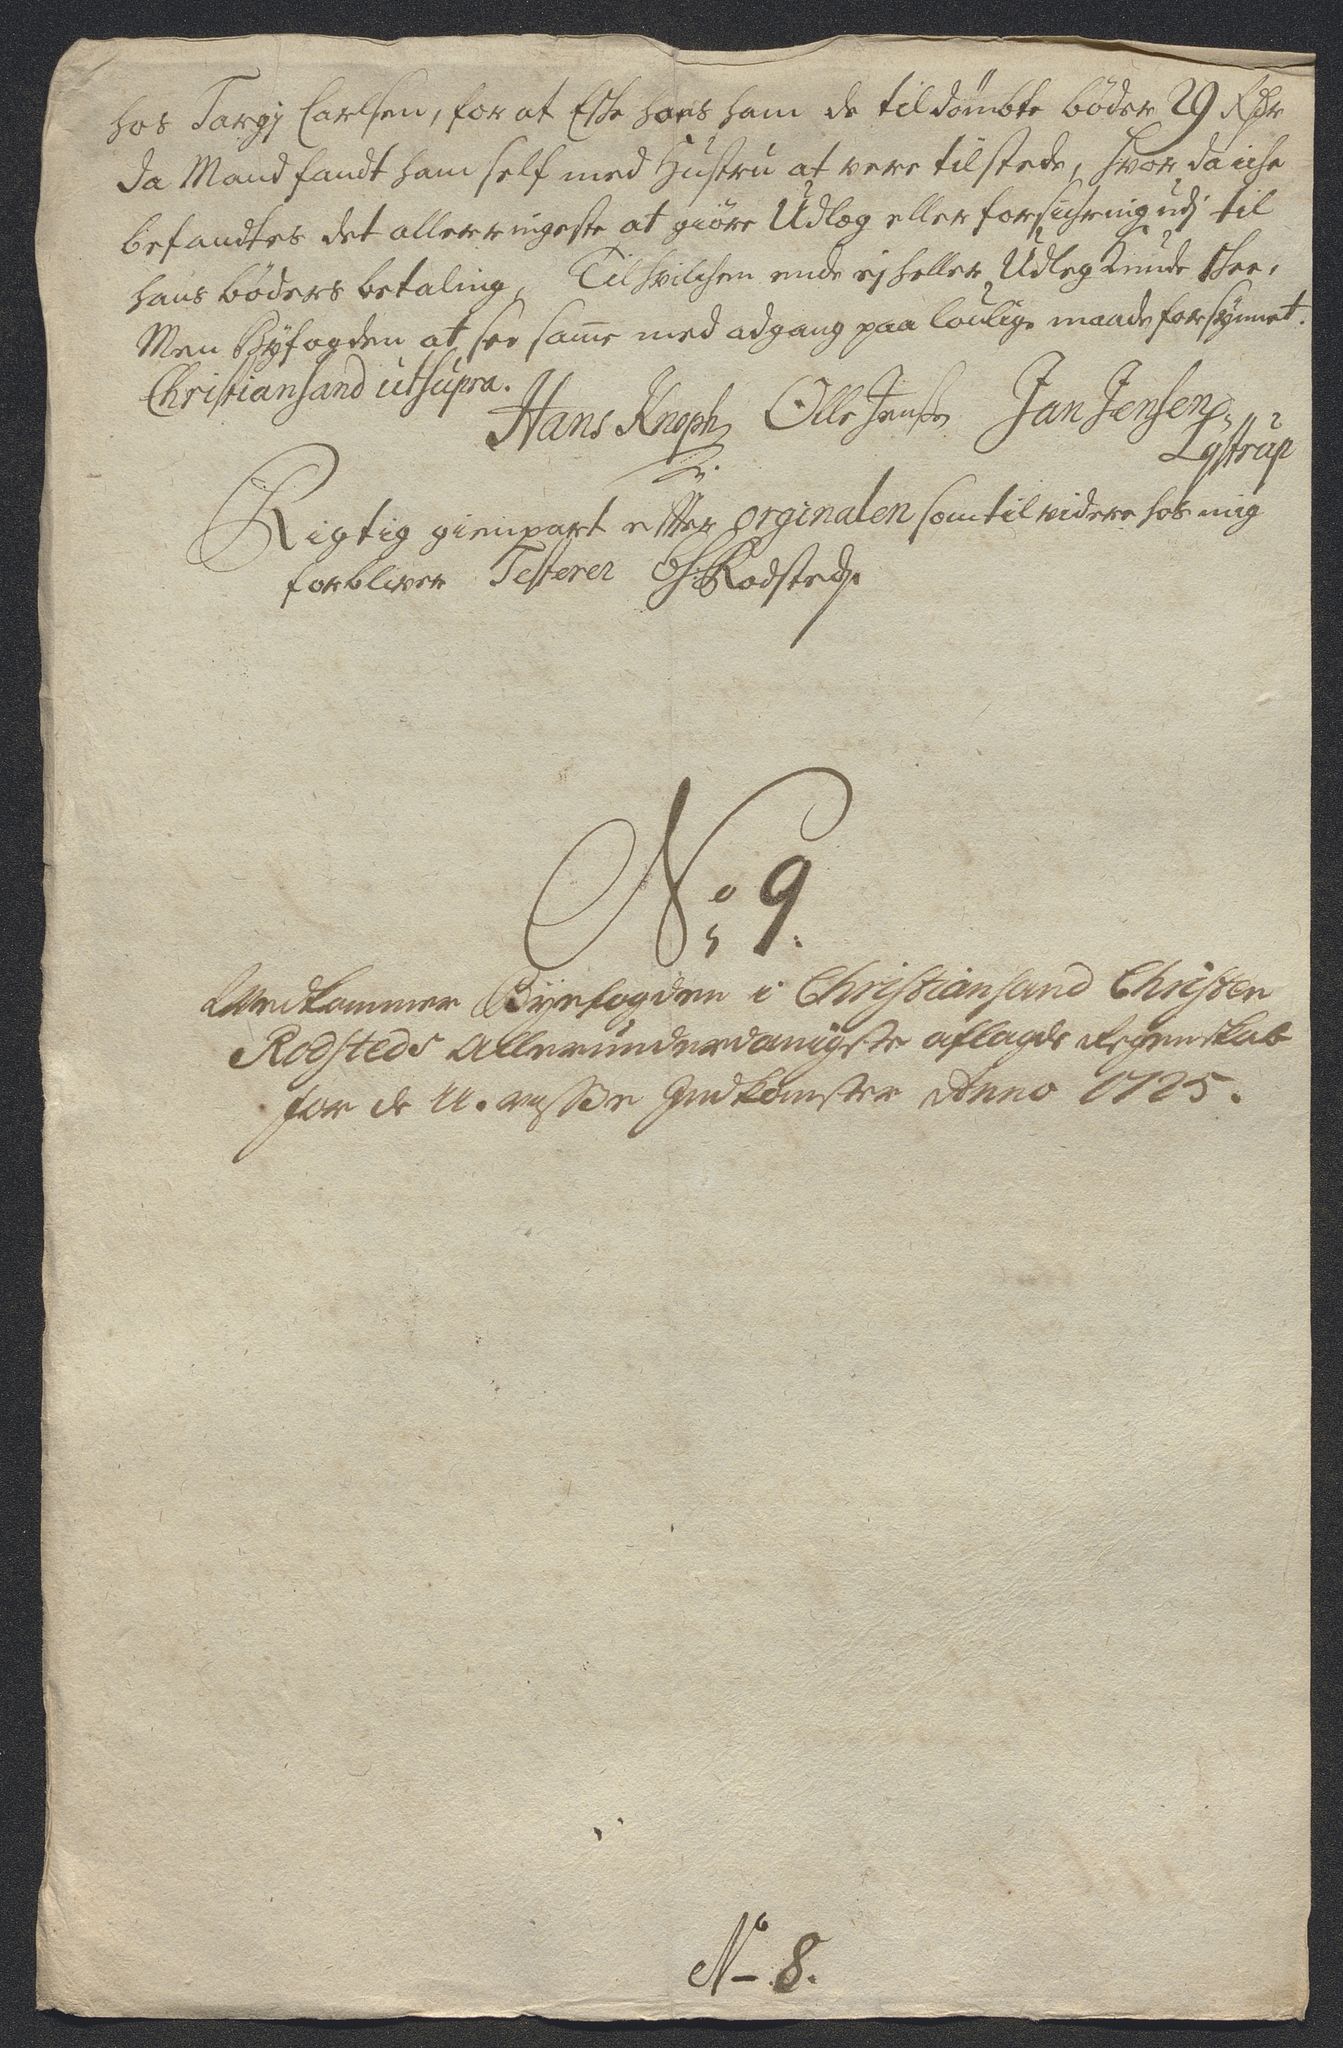 hos Targj Carlsen, for at Esche hoes ham de tildömbte böder 29 Rdr
da Mand fandt ham self med Hustru at vere tilstede, hvor da iche
befandtes det allerringeste at giöre Udlæg eller forsichring udj til
hans böders betaling, Til hvilchen ende ej heller Udleg Kunde schee,
Men Byfogden at see samme med adgang paa loulige maade forsynnet.
Christiansand utsupra.
Hans Knoph Olle Jensen Jan Jensen
Lystrup
Rigtig gienpart efter orginalen som til videre hos mig
forbliver Testerer Ch: Rodsted.
No 9.
Vedkommer Byefogden i Christiansand Christen
Rodsteds allerunderdanigste aflagde Regenskab
for de U. visse Indkomster Anno 1725.
No 8.